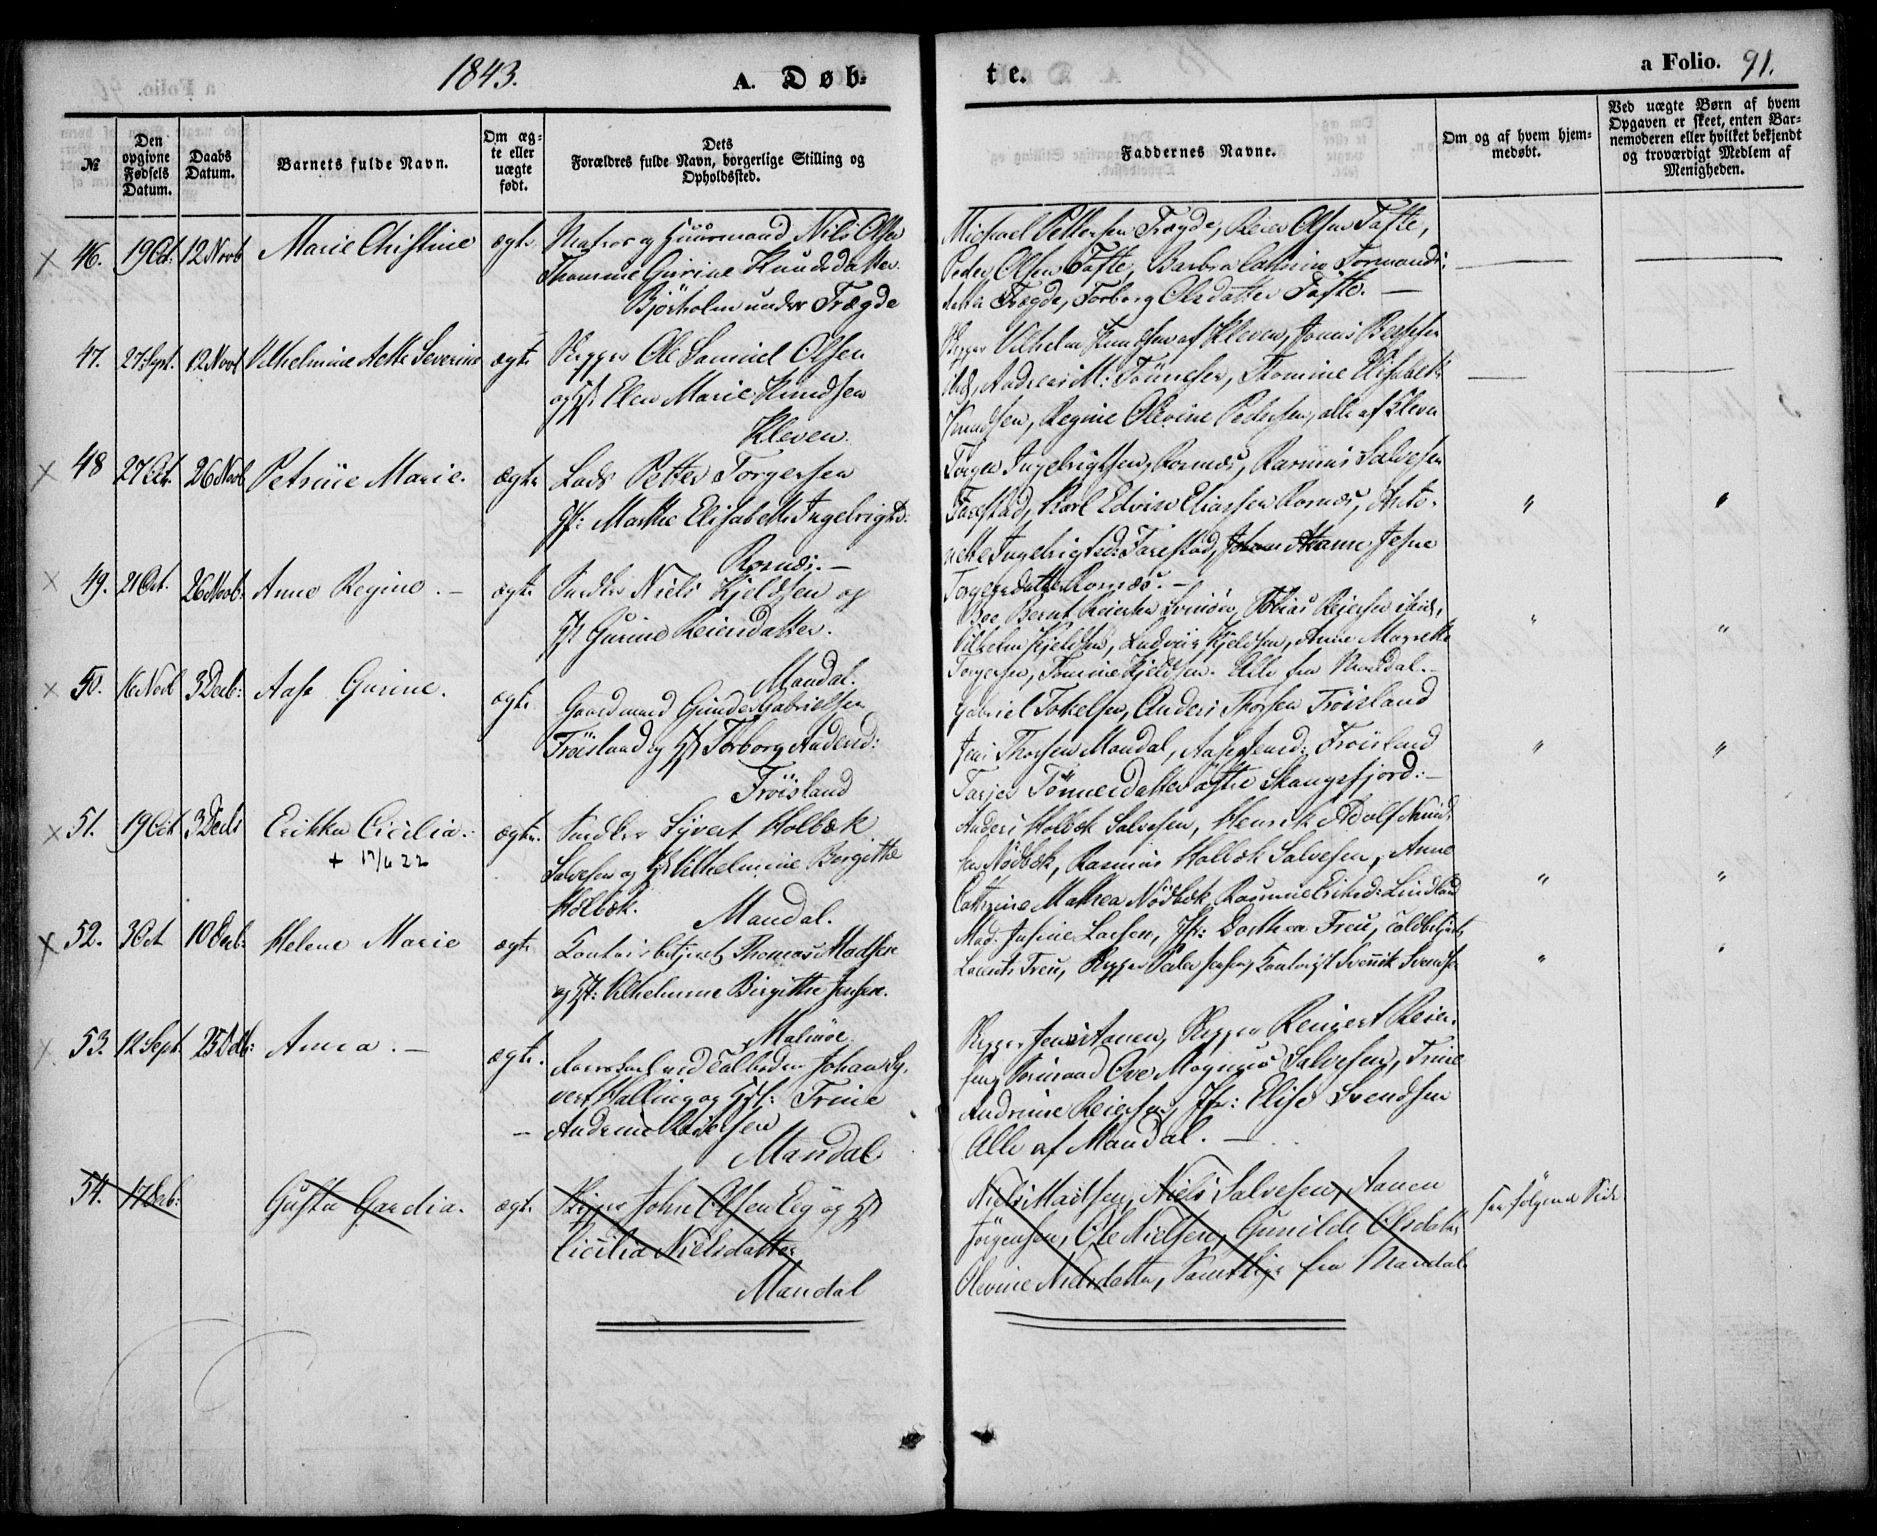 1843.
A. Døb-
te.
a Folio. 91.
№
Den opgivne Fødsels Datum.
Daabs Datum.
Barnets fulde Navn.
Om ægte eller uægte født.
Dets Forældres fulde Navn, borgerlige Stilling og Opholdssted.
Faddernes Navne.
Om og af hvem hjemmedøbt.
Ved uægte Børn af hvem Opgaven er skeet, enten Barnemoderen eller hvilket bekjendt og troværdigt Medlem af Menigheden.
46. 19 Oct. 12 Novb Marie Christine ægte
Matros og Huusmand Nils Olsen
Thomine Gurine Knudsdatter
Bjørholm under Trægde
Michael Pettersen Trægde, Reier Olsen Tofte,
Peder Olsen Tofte, Barbra Cathrine Tormands:
datter Trægde, Torborg Olsdatter Tofte. —
47. 27 Sept. 12 Novb Vilhelmine Aette Severine ægte
Skipper Ole Samuel Olsen
og H. Elen Marie Knudsen
Kleven.
Skipper Vilhelm Knudsen af Kleven, Jonas Beruldsen
ibid, Andreas M: Tönnesen, Thomine Elisabeth
Knudsen, Regine Olevine Pedersen, alle af Kleven
48 27 Oct. 26 Novb Petrine Marie. ægte
Lods Petter Torgersen
H: Marthe Elisabeth Ingebrigts:
Rosnæs. —
Torger Ingebrigtsen Rosnæs, Rasmus Salvesen
Farestad, Karl Edvin Eliassen Rosnæs, Anto-
nette Ingebrigtsd: Farestad, Johan Hanne Jesine
Torgersdatter Rosnæs. —
49. 21 Oct. 26 Novb: Anne Regine. — ægte
Snedker Niels Kjeldsen og
H. Gurine Reiersdatter.
Mandal.
Boe Bernt Reiersen Svinöen, Tobias Reiersen ibid,
Vilhelm Kjeldsen, Ludvig Kjeldsen, Anne Marrethe
Torgersen, Tomine Kjeldsen. Alle fra Mandal.
50. 16 Novb 3 Decb: Aase Gurine. ægte
Gaardmand Gunder Gabrielsen
Fröisland og H. Torborg Andersd:
Fröisland
Gabriel Tokelsen, Anders Thorsen Fröisland
Jens Thorsen Mandal, Aase Jensd: Fröisland
Tarjer Tönnesdatter Skaugsfjord: —
51. 19 Oct 3 Decb Erikka Cicilia. ægte.
+ 17/6 22
Snedker Syvert Holbæk
Salvesen og H. Vilhelmine Birgitte
Holbæk. Mandal.
Anders Holbæk Salvesen, Henrik Adolf Knud-
sen Nödbæk, Rasmus Holbæk Salvesen, Anne
Cathrine Mathea Nödbæk, Rasmine Eriksd: Lindland
52. 3 Oct 10 Decb: Helene Marie ægte
Contoirbetjent Thomas Madsen
og H: Vilhelmine Birgitte Jensen.
Malmöe
Mad. Jusine Larsen, Jfr: Dorthea Freu, Toldbetjent
Laurits Freu, Skipper Peder Jensen, Contorist Svennik Svendsen
53. 12 Sept 25 Decb: Anna. — ægte.
ved Toldboden Johan Sy-
vert Salling og H: Trine
Andrine Reiersen
Mandal
Skipper Jens Aanen, Skipper Reinert Reier-
sen, Ove Magnus Salvesen, Trine
Andrine Reiersen, Jfr: Elise Svendsen
Alle af Mandal. —
54. 17 Decb: Gusta Gardia. ægte.
Skipper John Olsen Eeg og H.
Cicilia Nielsdatter
Mandal
Niels Madsen, Niels Salvesen, Aanen
Jörgensen, Ole Nielsen, Gunilde Olsdatter
Olevine Nielsdatter, Samtlige fra Mandal
see følgende Side